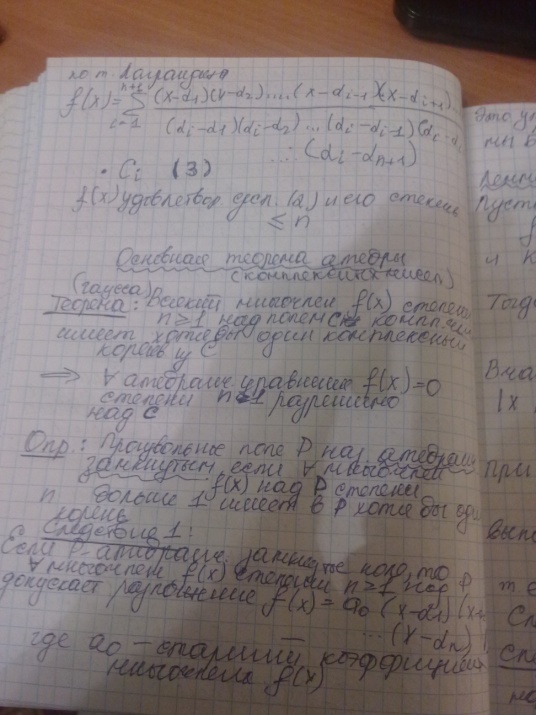 по т. Лагранжа
f(x)= n+1 ∑ i=1 (x-α1)(x-α2)....(x-αi-1)(x-αi+1)...
(αi-α1)(αi-α2)...(αi-αi-1)(αi-α
...(αi-αn+1)
· Ci (3)
f(x) удовлетвор. усл. (2) и его степень
≤ n
Основная теорема алгебры
(Гаусса) (комплексных чисел)
Теорема: Всякий многочлен f(x) степени
n≥1 над полем C компл. чисел
имеет хотя бы один комплексный
корень из C
⇒ ∀ алгебраич. уравнение f(x)=0
степени n≥1 разрешимо
над C
Опр.: Произвольное поле P наз. алгебраич.
замкнутым если ∀ многочлен
f(x) над P степени
n больше 1 имеет в P хотя бы один
корень
Следствие 1:
Если P-алгебраич. замкнутое поле, то
∀ многочлен f(x) степени n≥1 над P
допускает разложение f(x)=a0(x-α1)(x-
...(x-αn)
где a0 – старший коэффициент
многочлена f(x)
Это
Пусть
f
и к
Тогд
|x
при
выпо
т
Сл